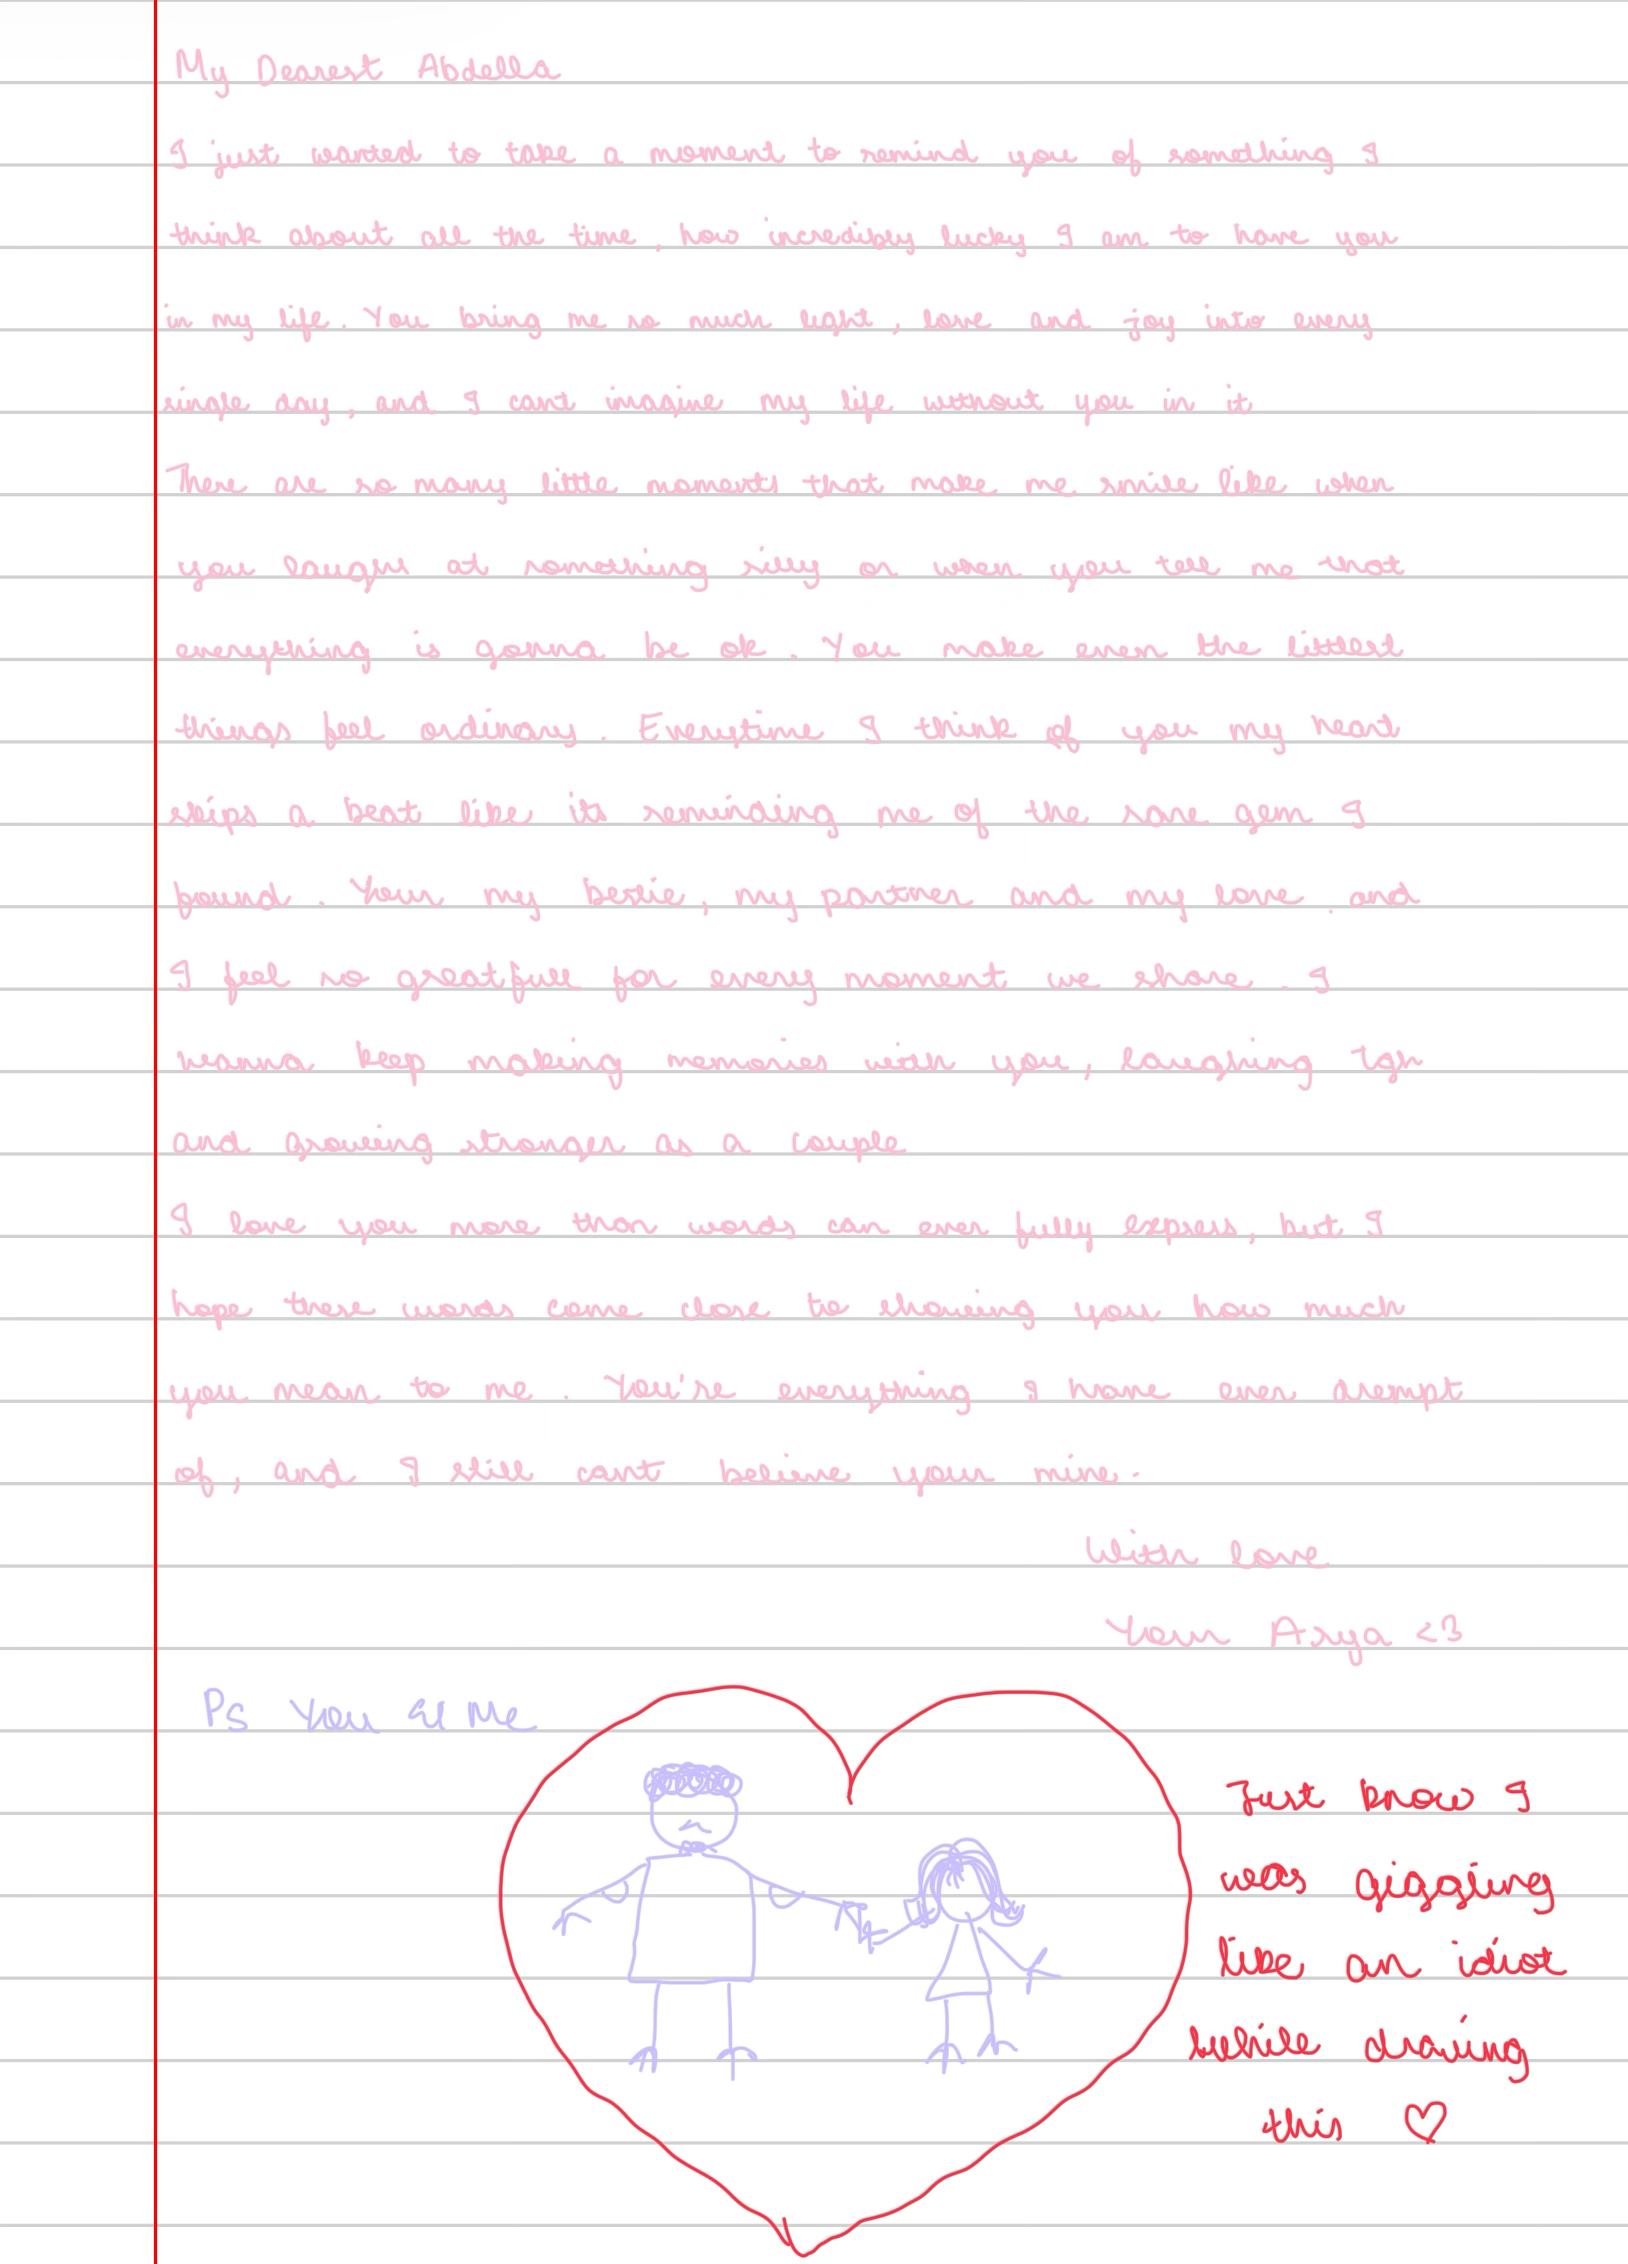 My Dearest Abdella
I just wanted to take a moment to remind you of something I
think about all the time, how incredibly lucky I am to have you
in my life. You bring me so much light, love and joy into every
single day, and I cant imagine my life without you in it
There are so many little moments that make me smile like when
you laugh at something silly or when you tell me that
everything is gonna be ok. You make even the littlest
things feel ordinary. Everytime I think of you my heart
skips a beat like its reminding me of the rare gem I
found. Your my bestie, my partner and my love. and
I feel so greatfull for every moment we share. I
wanna keep making memories with you, laughing tgh
and growing stronger as a couple
I love you more than words can ever fully express, but I
hope these words come close to showing you how much
you mean to me. You're everything I have ever drempt
of, and I still cant believe your mine.
With love
Your Asya <3
Ps You & Me
Just know I
was giggling
like an idiot
while drawing
this ♡